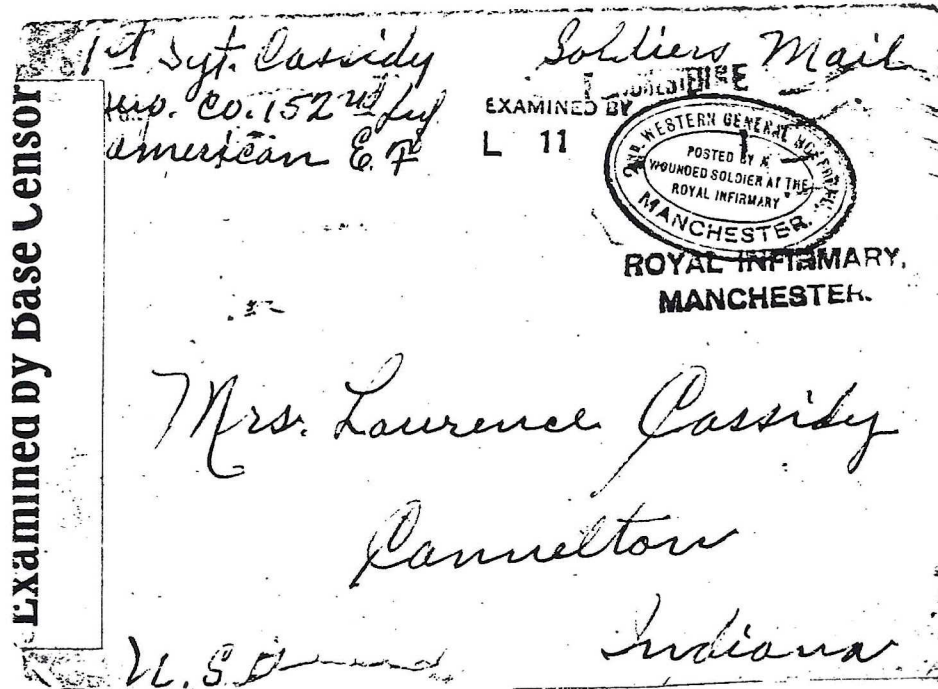 1st Sgt. Cassidy
Co. 152nd Inf
American E. F
Soldiers Mail
EXAMINED BY
L 11
2ND WESTERN GENERAL HOSPITAL,
POSTED BY A
WOUNDED SOLDIER AT THE
ROYAL INFIRMARY
MANCHESTER.
ROYAL INFIRMARY,
MANCHESTER.
Examined by Base Censor
Mrs. Laurence Cassidy
Cannelton
Indiana
U.S.A